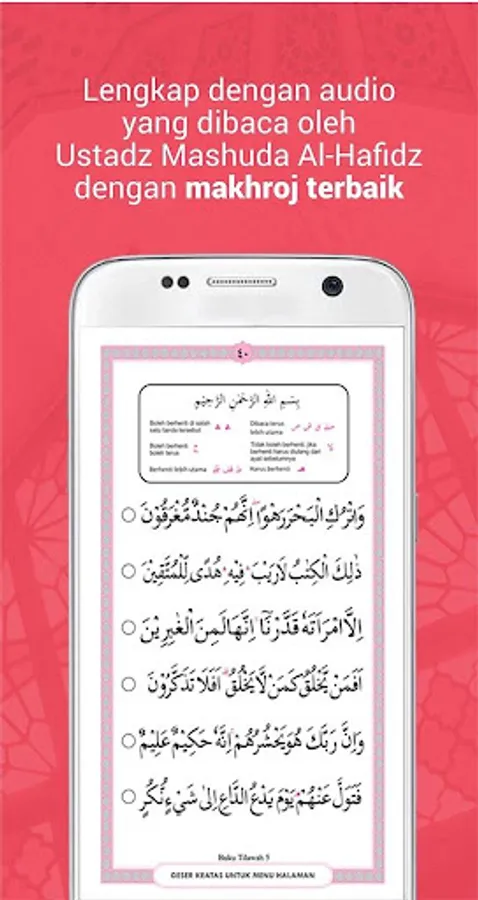 Lengkap dengan audio
yang dibaca oleh
Ustadz Mashuda Al-Hafidz
dengan makhroj terbaik
٤٠
بِسْمِ اللهِ الرَّحْمٰنِ الرَّحِيْمِ
Boleh berhenti di salah
satu tanda tersebut
Dibaca terus
lebih utama
Boleh berhenti
boleh terus
ج
Tidak boleh berhenti, jika
berhenti harus diulang dari
ayat sebelumnya
لا
Berhenti lebih utama
Harus berhenti
وَاتْرُكِ الْبَحْرَ رَهْوًا ۗ اِنَّهُمْ جُنْدٌ مُّغْرَقُوْنَ
ذٰلِكَ الْكِتٰبُ لَارَيْبَ ۛ فِيْهِ ۛ هُدًى لِّلْمُتَّقِيْنَ
اِلَّا امْرَاَتَهٗ قَدَّرْنَآ اِنَّهَا لَمِنَ الْغٰبِرِيْنَ
اَفَمَنْ يَّخْلُقُ كَمَنْ لَّا يَخْلُقُ ۗ اَفَلَا تَذَكَّرُوْنَ
وَاِنَّ رَبَّكَ هُوَ يَحْشُرُهُمْ ۗ اِنَّهٗ حَكِيْمٌ عَلِيْمٌ
فَتَوَلَّ عَنْهُمْ ۘ يَوْمَ يَدْعُ الدَّاعِ اِلٰى شَيْءٍ نُّكُرٍ
Buku Tilawah 5
GESER KEATAS UNTUK MENU HALAMAN